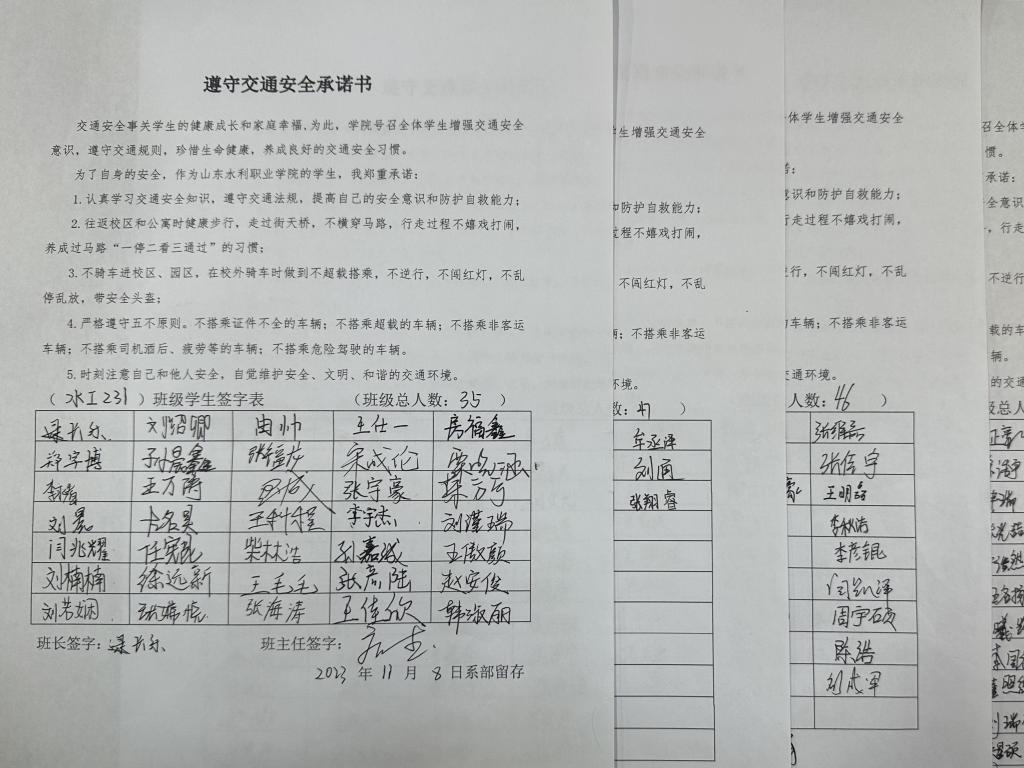 遵守交通安全承诺书
交通安全事关学生的健康成长和家庭幸福,为此,学院号召全体学生增强交通安全
意识,遵守交通规则,珍惜生命健康,养成良好的交通安全习惯。
为了自身的安全,作为山东水利职业学院的学生,我郑重承诺:
1.认真学习交通安全知识,遵守交通法规,提高自己的安全意识和防护自救能力;
2.往返校区和公寓时健康步行,走过街天桥,不横穿马路,行走过程不嬉戏打闹,
养成过马路“一停二看三通过”的习惯;
3.不骑车进校区、园区,在校外骑车时做到不超载搭乘,不逆行,不闯红灯,不乱
停乱放,带安全头盔;
4.严格遵守五不原则。不搭乘证件不全的车辆;不搭乘超载的车辆;不搭乘非客运
车辆;不搭乘司机酒后、疲劳等的车辆;不搭乘危险驾驶的车辆。
5.时刻注意自己和他人安全,自觉维护安全、文明、和谐的交通环境。
(水工231)班级学生签字表 (班级总人数:35 )
刘绍卿 由帅 王仕一 房福鑫
郑字博 孙晨鑫 宋成伦
王万涛 张宇豪
刘晨 李宇杰 刘谨瑞
闫兆耀 任宪昆 柴林浩 孙嘉诚 王傲颜
刘楠楠 徐远新 王毛毛 张彦陆 赵安俊
刘芳娴 张海涛 王佳欣 韩淑丽
班长签字: 班主任签字:
2023 年 11 月 8 日系部留存
生增强交通安全
防护自救能力;
程不嬉戏打闹,
不闯红灯,不乱
不搭乘非客运
环境。
数:41 )
牟丞泽
刘甬
张翔睿
体学生增强交通安全
意识和防护自救能力;
走过程不嬉戏打闹,
逆行,不闯红灯,不乱
车辆;不搭乘非客运
交通环境。
人数:46 )
张维磊
张信宇
王明磊
李秋浩
李彦锟
周宇硕
陈浩
刘成军
召全体学
惯。
承诺:
全意识
行走
不逆行
载的车
辆。
的交通
级总人